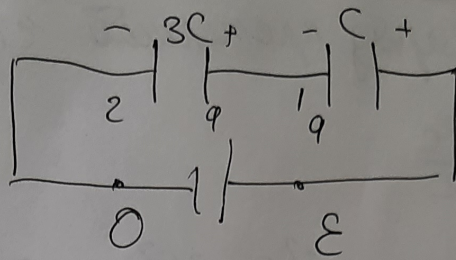 - 3C + - C +
2 q 1 q
O ε